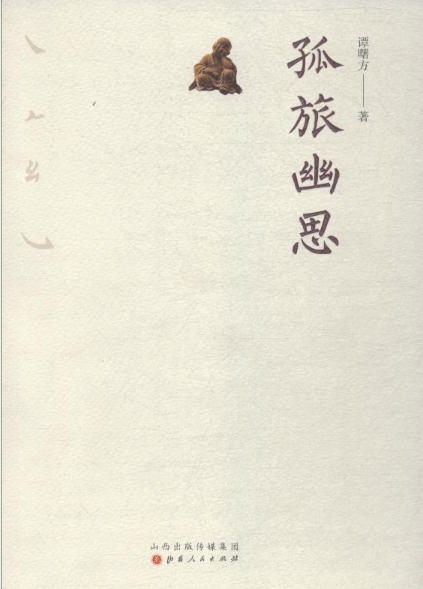 谭曙方——著
孤旅幽思
山西出版传媒集团
山西人民出版社